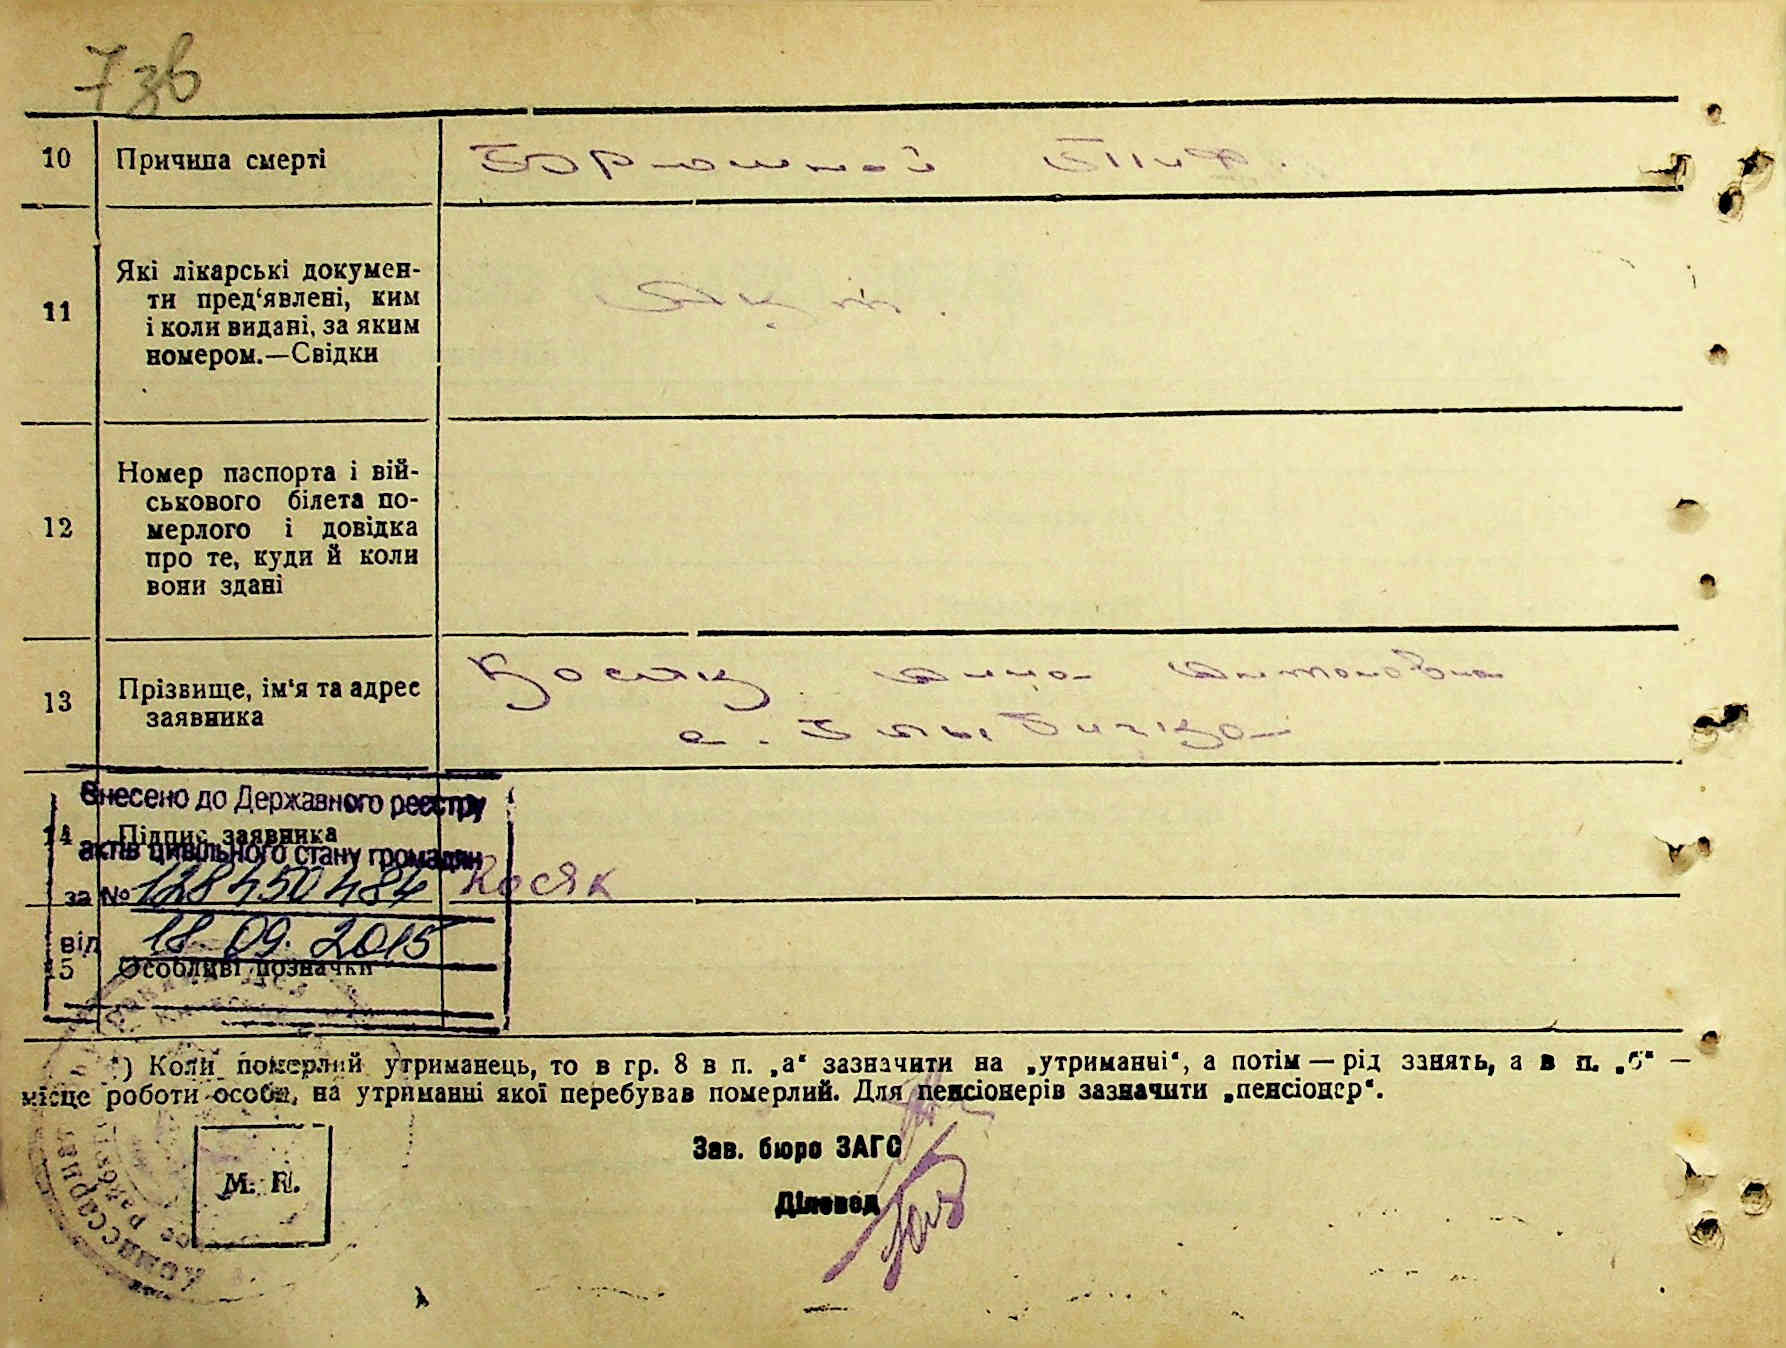 7зв
10 Причина смерті Брюшной тиф.
11 Які лікарські докумен-
ти пред‘явлені, ким
і коли видані, за яким
номером.—Свідки
Акт.
12 Номер паспорта і вій-
ськового білета по-
мерлого і довідка
про те, куди й коли
вони здані
13 Прізвище, ім‘я та адрес
заявника
Косяк Анна Антоновна
с.
Внесено до Державного реєстру
14 Підпис заявника
актів цивільного стану громадян
за № 128450484 Косяк
від 18.09.2015
15 Особливі позначки
*) Коли померлий утриманець, то в гр. 8 в п. „а“ зазначити на „утриманні“, а потім — рід занять, а в п. „б“ —
місце роботи особи, на утриманні якої перебував померлий. Для пенсіонерів зазначити „пенсіонер“.
Зав. бюро ЗАГС
М. П.
Діловод